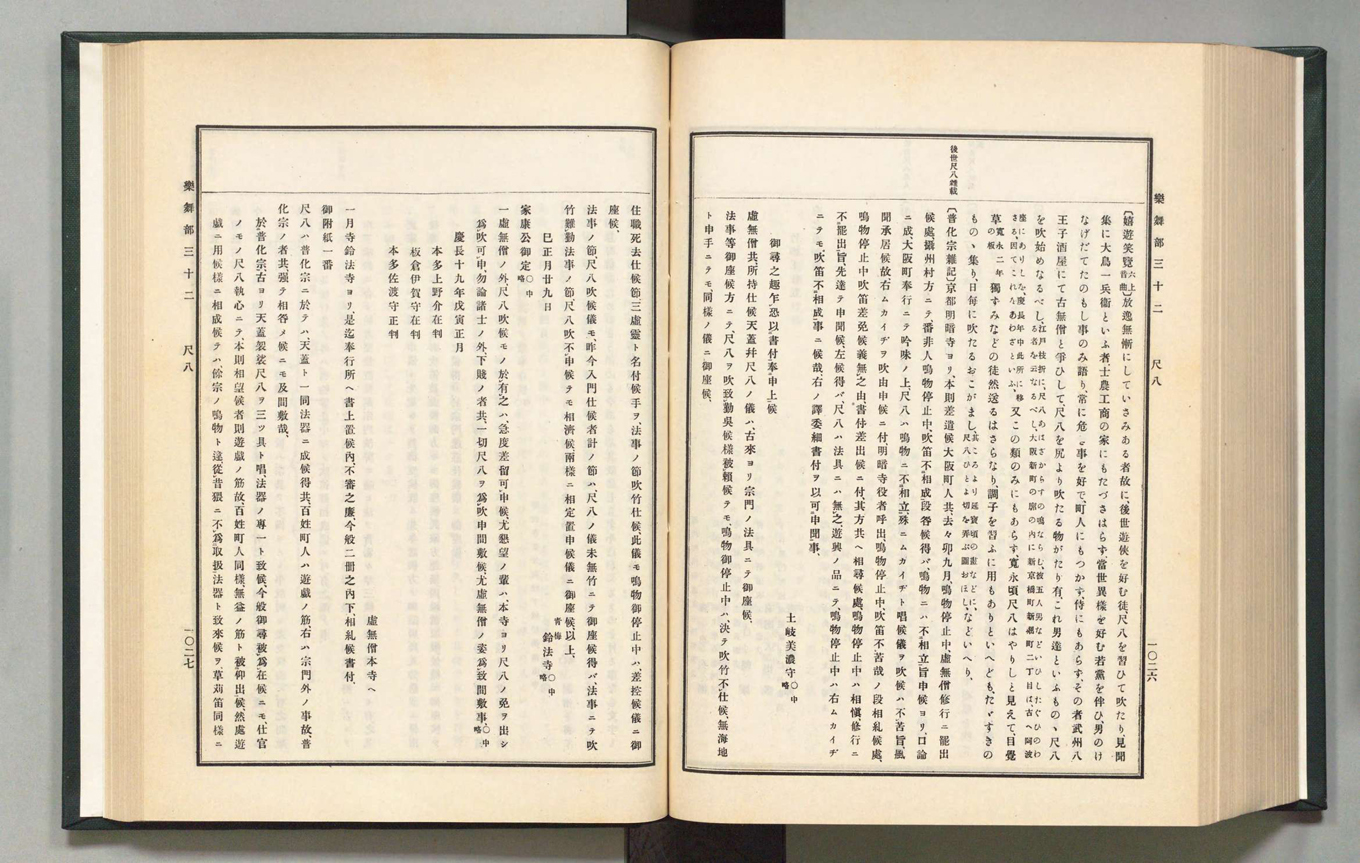 樂舞部三十二 尺八
一〇二六
後世尺八雜載
〔嬉遊笑覽六上音曲〕放逸無慚にしていさみある者故に、後世遊俠を好む徒、尺八を習ひて吹たり、見聞
集に大鳥一兵衞といふ者士農工商の家にもたづさはらず、當世異樣を好む若黨を伴ひ、男のけ
なげだてたのもし事のみ語り、常に危き事を好で、町人にもつかず、侍にもあらず、その者武州八
王子酒屋にて古無僧と爭ひして、尺八を尻より吹たる物がたり有、これ男達といふものヽ尺八
を吹始めなるべし、
草寬永二年の板 獨すみなどの徒然送るはさらなり、調子を習ふに用もありといへども、たヾすきの
ものヽ集り、日每に吹たるおこがまし、
〔普化宗雜記〕京都明暗寺ヨリ、本則差遣候大阪町人共、去々卯九月、鳴物停止中、虛無僧修行ニ罷出
候處、攝州村方ニテ、番非人鳴物停止中、吹笛不相成段咎候得バ、鳴物ニハ不相立旨申候ヨリ、口論
ニ成、大阪町奉行ニテ吟味ノ上、尺八ハ鳴物ニ不相立、殊ニムカイヂト唱候儀ヲ吹候ハ不苦旨、風
聞承居候故、右ムカイヂヲ吹由申候ニ付、明暗寺役者呼出、鳴物停止中、吹笛不苦哉ノ段相糺候處、
鳴物停止中吹笛差免候義無之由、書付差出候ニ付、其方共へ相尋候處、鳴物停止中ハ相愼、修行ニ
不罷出旨、先達テ申聞候、左候得バ、尺八ハ法具ニハ無之、遊興ノ品ニテ、鳴物停止中ハ右ムカイヂ
ニテモ、吹笛不相成事ニ候哉、右ノ譯委細書付ヲ以可申聞事、
土岐美濃守〇中略
御尋之趣乍恐以書付奉申上候
虛無僧共、所持仕候天蓋幷尺八ノ儀ハ、古來ヨリ宗門ノ法具ニテ御座候、
法事等御座候方ニテ、尺八ヲ吹致勤吳候樣被賴候テモ、鳴物御停止中ハ、決テ吹竹不仕候、無海地
ト申手ニテモ、同樣ノ儀ニ御座候、
住職死去仕候節、三虛靈ト名付候手ヲ、法事ノ節吹竹仕候、此儀モ鳴物御停止中ハ、差控候儀ニ御
座候、
法事ノ節、尺八吹候儀モ、昨今入門仕候者計ノ節ハ、尺八ノ儀未無竹ニテ御座候得バ、法事ニテ吹
竹難勤、法事ノ節、尺八吹不申候テモ相濟候、兩樣ニ相定置申候儀ニ御座候、以上、
巳正月廿九日
靑梅 鈴法寺〇中略
家康公御定〇中略
一虛無僧ノ外、尺八吹候モノ於有之ハ、急度差留可申候、尤懇望ノ輩ハ、本寺ヨリ尺八ノ免ヲ出シ
爲吹可申、勿論諸士ノ外、下賤ノ者共、一切尺八ヲ爲吹申間敷候、尤虛無僧ノ姿爲致間敷事、〇中略
慶長十九年戊寅正月
本多上野介在判
板倉伊賀守在判
本多佐渡守正判
虛無僧本寺へ
一月寺鈴法寺ヨリ、是迄奉行所へ書上置候內、不審之廉、今般二册之內、下相糺候書付、
御附紙一番
尺八ハ普化宗ニ於テハ、天蓋ト一同法器ニ成候得共、百姓町人ハ遊戲ノ筋、右ハ宗門外ノ事故、普
化宗ノ者共、强テ相咎メ候ニモ及間敷哉、
於普化宗、古ヨリ天蓋袈裟尺八ヲ三ツ具ト唱、法器ノ專一ト致候、今般御尋被爲在候ニモ、仕官
ノモノ尺八執心ニテ、本則相望候者、則遊戲ノ筋故、百姓町人同樣、無益ノ筋ト被仰出候、然處遊
戲ニ用候樣ニ相成候テハ、餘宗ノ鳴物ト違、從昔猥ニ不爲取扱、法器ト致來候ヲ、草苅笛同樣ニ
樂舞部三十二 尺八
一〇二七